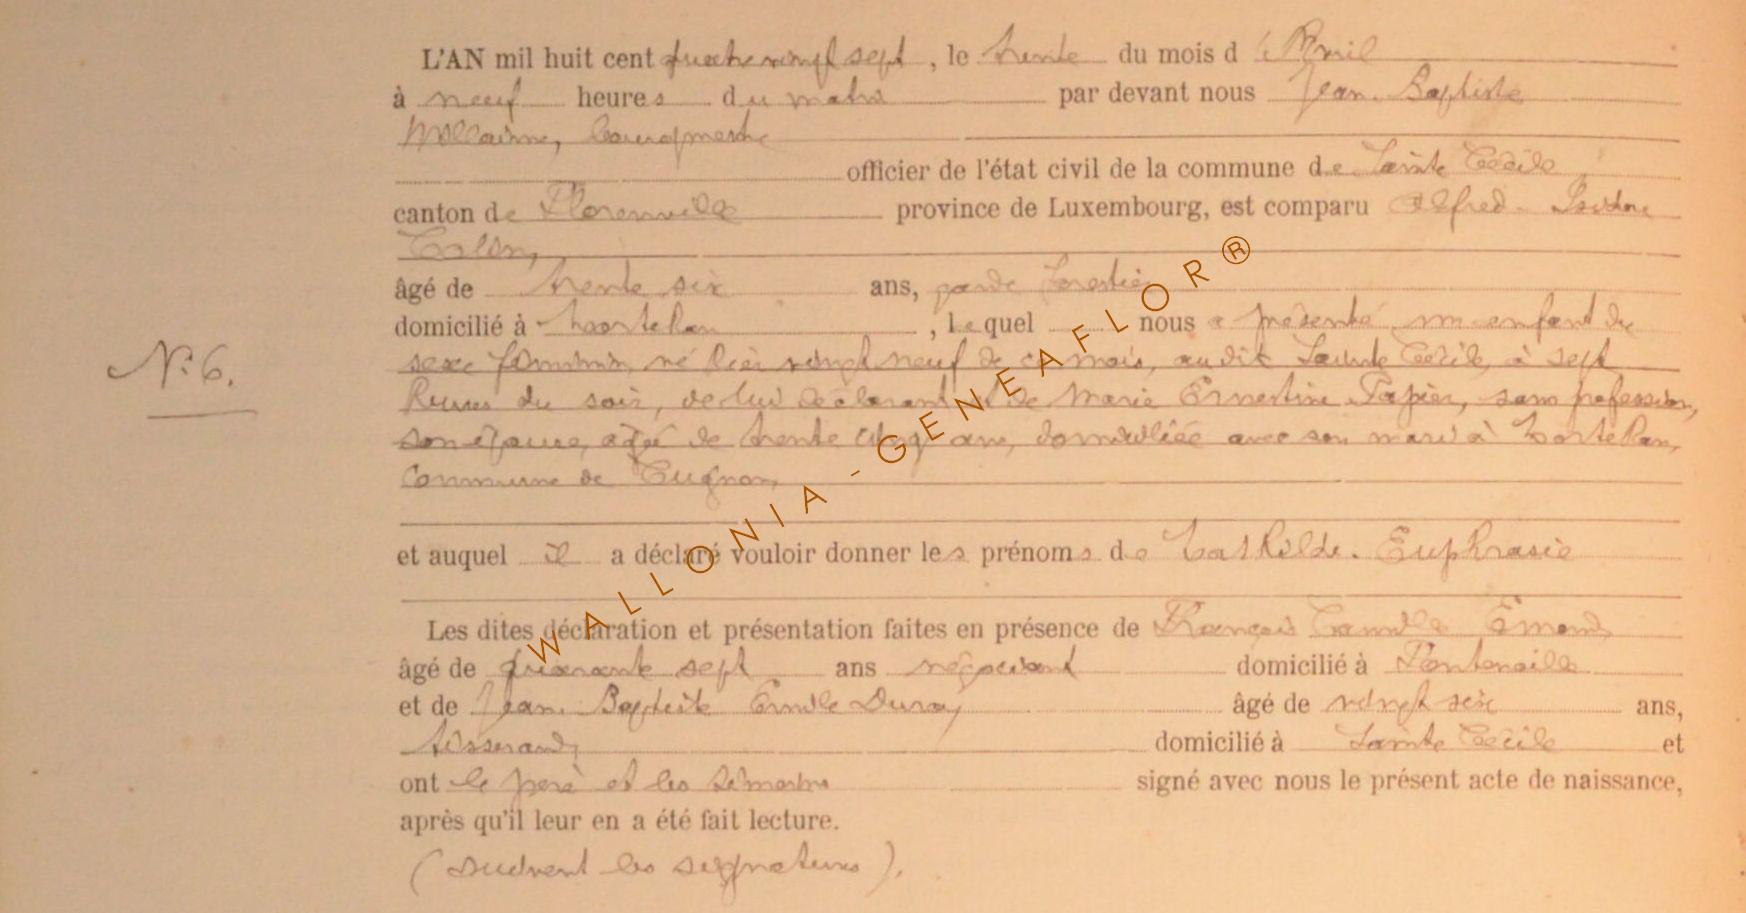 L'AN mil huit cent quatre vingt sept, le trente du mois d'Avril
à neuf heures du matin par devant nous Jean-Baptiste
bourgmestre
officier de l'état civil de la commune de Sainte Cécile
canton de Florenville province de Luxembourg, est comparu Alfred-Isidore
âgé de trente six ans, garde forestier
domicilié à Mortehan, lequel nous a présenté un enfant du
sexe féminin, né hier vingt neuf de ce mois, au dit Sainte Cécile, à sept
heures du soir, de lui déclarant et de Marie Ernestine Papier, sans profession,
son épouse, agée de trente cinq ans, domiciliée avec son mari à Mortehan,
commune de Cugnon,
et auquel il a déclaré vouloir donner les prénoms de Bathilde-Euphrasie
Les dites déclaration et présentation faites en présence de François Camille Emond,
âgé de quarante sept ans négociant domicilié à Fontenoille
et de Jean-Baptiste Emile Duroy âgé de vingt six ans,
tisserand, domicilié à Sainte Cécile et
ont le père et les témoins signé avec nous le présent acte de naissance,
après qu'il leur en a été fait lecture.
(suivent les signatures).
N° 6.
WALLONIA - GENEAFLOR ®